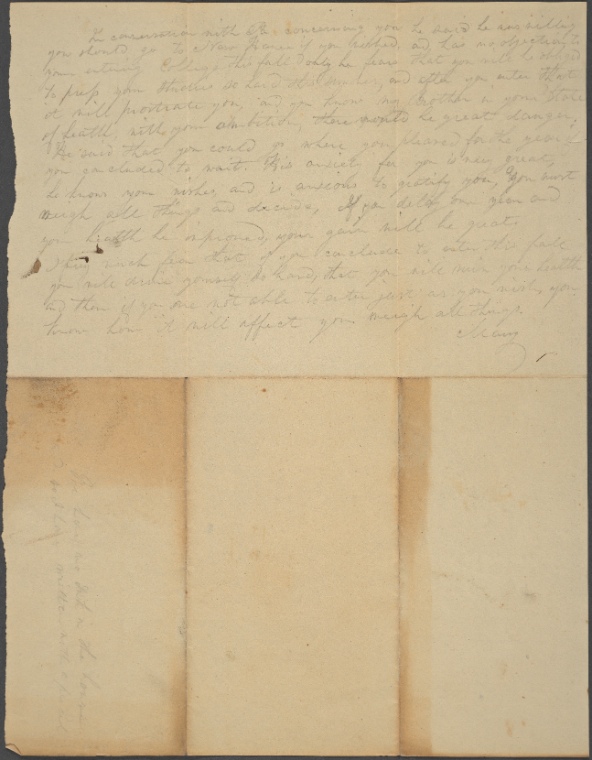 In conversation with Pa concerning you he said he was willing
you should go to New Haven if you wished, and has no objection to
your entering College this fall only he fears that you will be obliged
to press your studies so hard this summer, and after you enter that
it will prostrate you, and you know my brother in your state
of health, with your ambition, there would be great danger.
He said that you could go where you pleased for the year if
you concluded to wait. His anxiety for you is very great,
he knows your wishes, and is anxious to gratify you, You must
weigh all things and decide, If you delay one year and
your health be improved, your gain will be great.
I very much fear that if you conclude to enter this fall
you will drive yourself so hard, that you will ruin your health
and then if you are not able to enter just as you wish, you
know how it will affect you weigh all things.
Mary
the